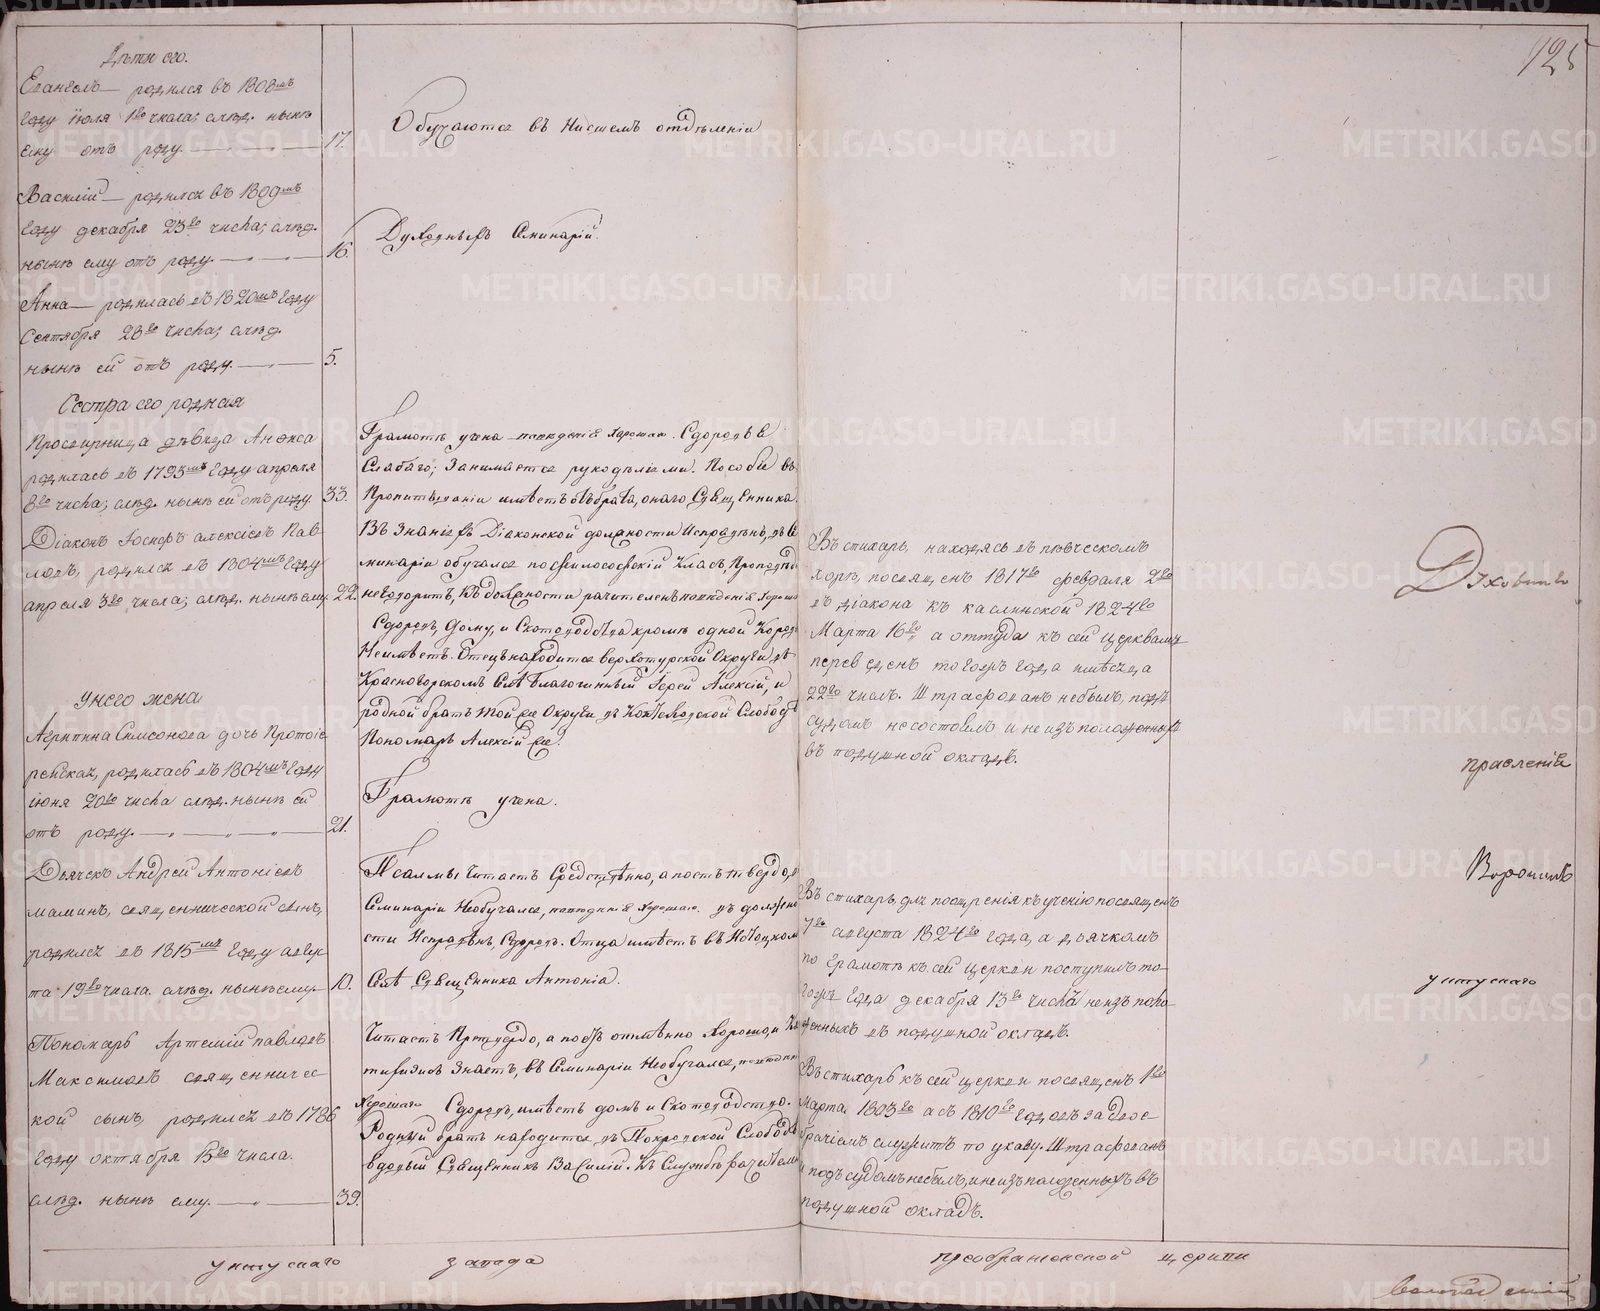 125
Дѣти его.
Евангелъ — родился въ 1808мъ
году июля 1го числа; слѣд. нынѣ
ему отъ роду 17.
Василій — родился въ 1809мъ
году декабря 23го числа; слѣд.
нынѣ ему отъ роду 16.
Анна — родилась въ 1820мъ году
Сентября 28го числа; слѣд.
нынѣ ей отъ роду. 5.
Сестра его родная
Просвирница дѣвица Анфиса
родилась въ 1793мъ году апреля
8го числа; слѣд. нынѣ ей отъ роду 33.
Діаконъ Іосифъ алексіевъ Пав-
ловъ, родился въ 1804мъ году
апреля 3го числа; слѣд. нынѣ ему 22.
У него жена
родилась въ 1804мъ году
іюня 20го числа слѣд. нынѣ ей
отъ роду. 21.
Дьячекъ Андрей Антоніевъ
маминъ, священнической сынъ,
родился въ 1815мъ году авгус-
та 19го числа слѣд. нынѣ ему 10.
Пономарь Артемій павловъ
Максимовъ священничес-
кой сынъ, родился въ 1786
году октября 15го числа.
слѣд. нынѣ ему. 39.
Обучаются въ Нисшемъ отдѣленіи
Духовныхъ Семинарій.
Грамотѣ учена поведенія хорошаго. Здоровья
Слабаго; Занимается рукодѣліемъ. Пособіе въ
Пропитаніи имѣетъ отъ брата, онаго Священника
Въ Знаніяхъ Діаконской должности Исправенъ, въ Се
минаріи обучался по философскій Класъ, Проповѣди
неговоритъ, Къ должности рачителенъ поведенія хороша
Здоровъ, Дому, и Скотоводства кромѣ одной Коровы
Неимѣетъ. Отецъ находится верхотурской Округи въ
Красногорскомъ Селѣ Благочинный Іерей Алексій, и
родной братъ той же Округи въ Слободѣ
Пономарь Алексій же.
Грамотѣ учена.
Псалмы Читаетъ Средственно, а поетъ твердо, въ
Семинаріи Необучался, поведенія Хорошаго. въ должно
сти Исправенъ, Здоровъ. Отца имѣетъ въ
Селѣ Священника Антонія.
Читаетъ Протвердо, а поетъ отмѣнно Хорошо, и Ка
тихизисъ Знаетъ, въ Семинаріи Необучался, поведен
Хорошаго Здоровъ, имѣетъ домъ и Скотоводство.
Родный братъ находится въ Покровской Слободѣ
вдовый Священникъ Василій. Къ Службѣ рачителе
Въ стихарь, находясь въ пѣвческомъ
хорѣ, посвященъ 1817го февраля 2го
въ діакона къ каслинской 1824го
Марта 16го, а оттуда къ сей церквамъ
переведенъ тогожъ года и мѣсяца
22го числъ. Штрафованъ небылъ, подъ
судомъ несостоялъ и не изъ положенныхъ
въ подушной окладъ.
Въ стихарь для поощренія къ ученію посвященъ
7го августа 1824го года, а дьячкомъ
по грамотѣ къ сей церкви поступилъ то-
гожъ года декабря 13го числа неизъ поло
женныхъ въ подушной окладъ.
Въ стихарь къ сей церкви посвященъ 1го
Марта 1803го а съ 1810го годовъ за двое
брачіемъ служитъ по указу. Штрафованъ
и подъ судомъ небылъ, и неизъ положенныхъ въ
подушной окладъ.
Духовнаго
правленія
уткускаго
завода
преображенской церкви